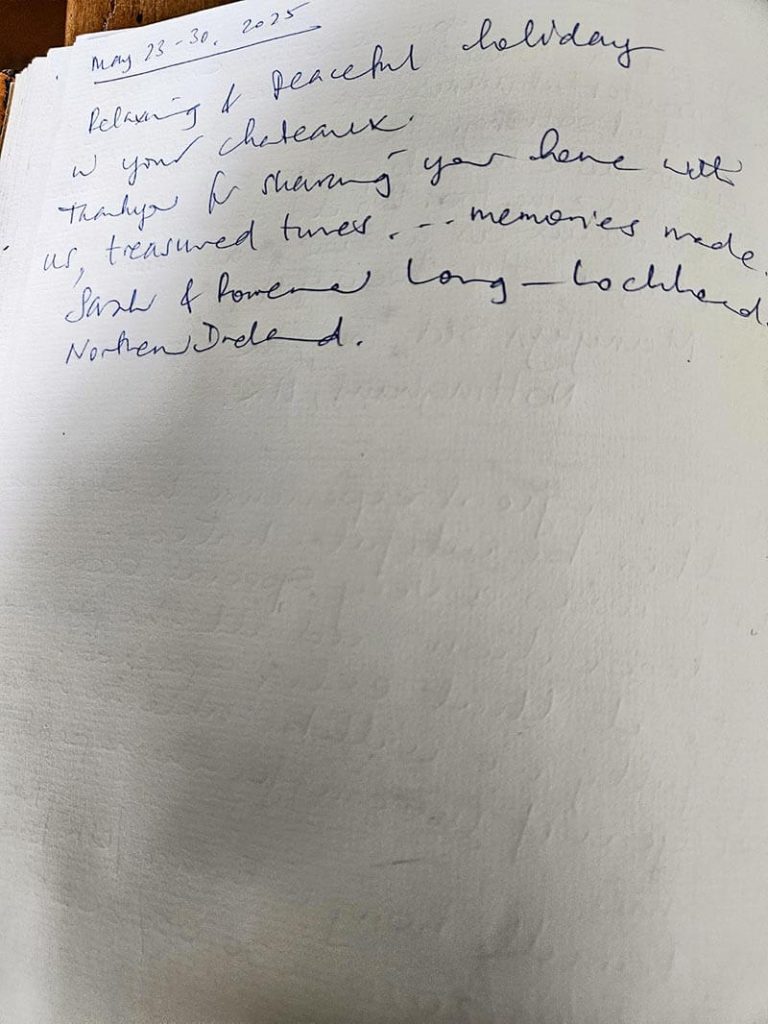 May 23-30, 2025
Relaxing & peaceful holiday
in your chateaux.
Thankyou for sharing your home with
us, treasured times. ... memories made.
& Rowena Long - Lochhead.
Northern Ireland.